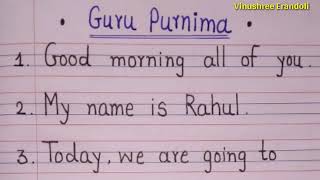 Vinushree Erandoli
• Guru Purnima •
1. Good morning all of you.
2. My name is Rahul.
3. Today, we are going to